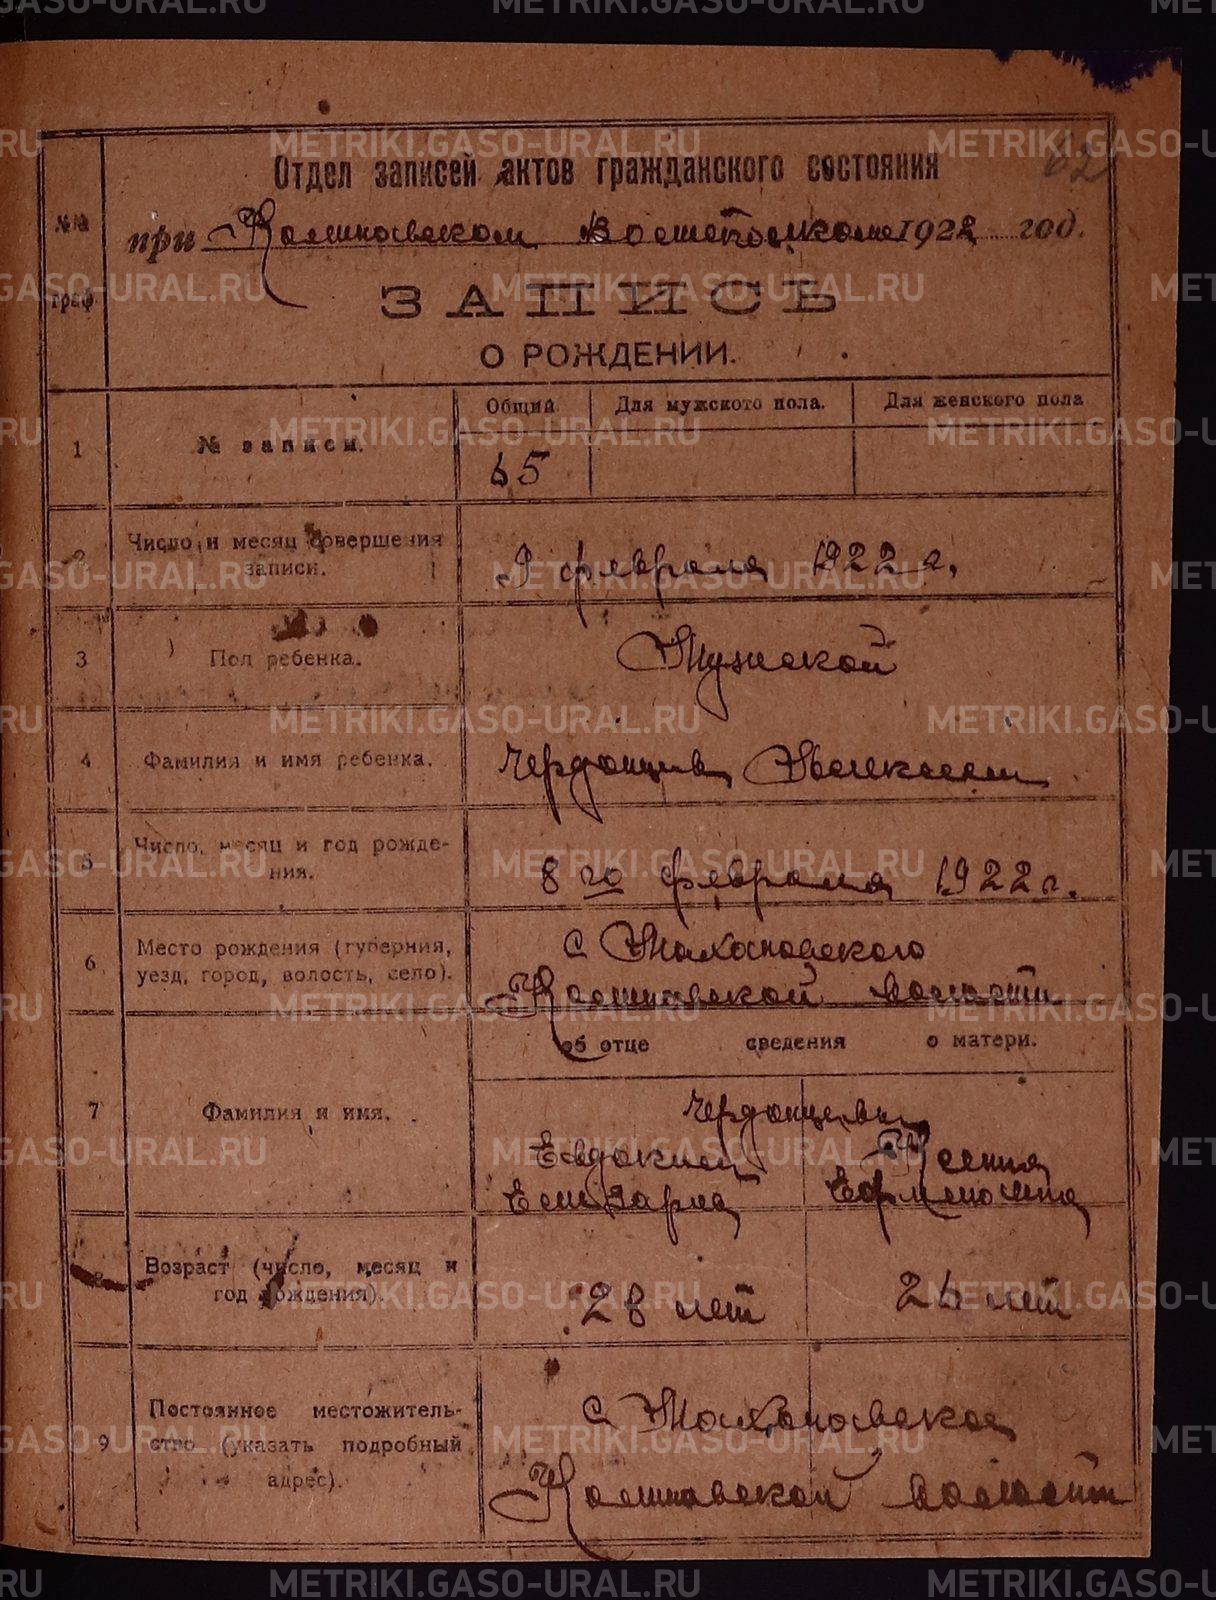 Отдел записей актов гражданского состояния
при 1922 год.
№№ граф.
ЗАПИСЬ
О РОЖДЕНИИ.
1 № записи.
Общий Для мужского пола. Для женского пола
65
2 Число и месяц совершения записи.
9 февраля 1922 г.
3 Пол ребенка.
Мужской
4 Фамилия и имя ребенка.
Чердынцев Алексей
5 Число, месяц и год рожде-
ния.
8го февраля 1922 г.
6 Место рождения (губерния,
уезд, город, волость, село).
с
волости
об отце сведения о матери.
7 Фамилия и имя.
Чердынцевы
Евдоким Ксения
Елизаров
8 Возраст (число, месяц и
год рождения).
28 лет 26 лет
9 Постоянное местожитель-
ство (указать подробный
адрес).
с
METRIKI.GASO-URAL.RU